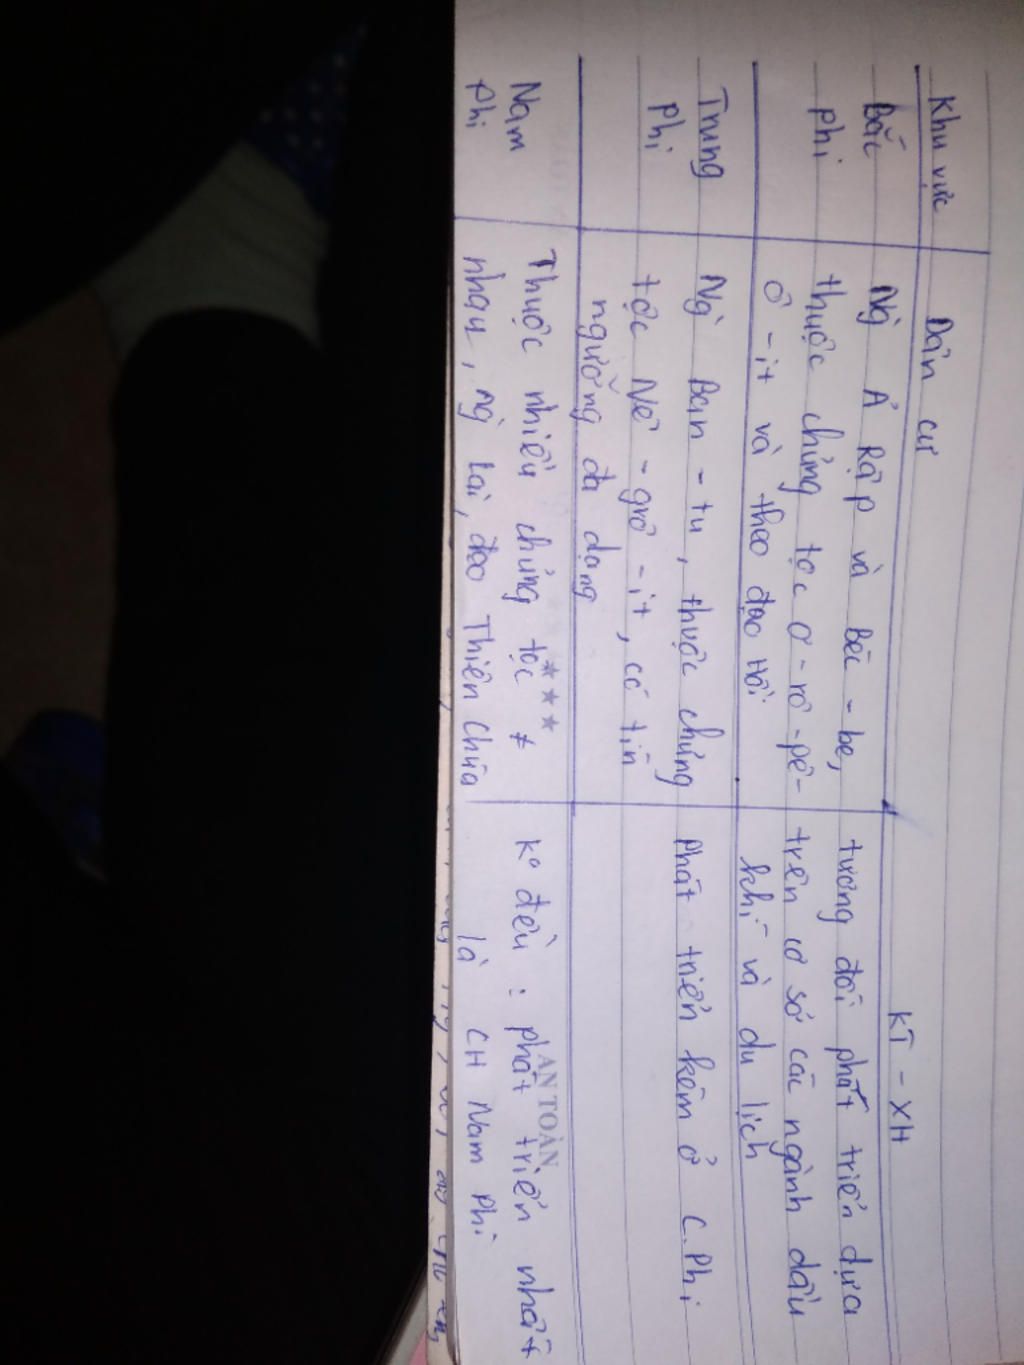 Khu vực
Dân cư
KT - XH
Bắc
Phi
Ng Ả Rập và Béc - be,
thuộc chủng tộc Ơ - rô - pê-
ô - it và theo đạo Hồi
tương đối phát triển dựa
trên cơ sở các ngành dầu
khí và du lịch
Trung
Phi
Ng Ban - tu, thuộc chủng
tộc Nê - grô - it, có tín
ngưỡng đa dạng
Phát triển kém ở C.Phi
Nam
Phi
Thuộc nhiều chủng tộc ≠
nhau, ng lai, đạo Thiên Chúa
Ko đều : phát triển nhất
là CH Nam Phi
★★★
AN TOÀN